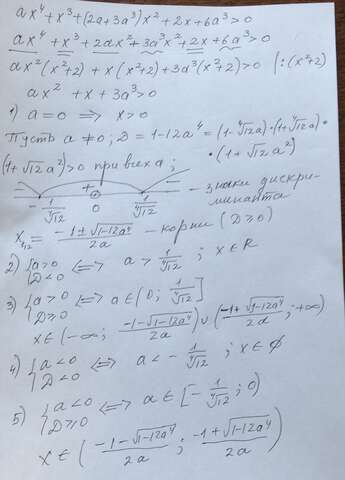 ax⁴+x³+(2a+3a³)x²+2x+6a³>0
ax⁴+x³+2ax²+3a³x²+2x+6a³>0
ax²(x²+2)+x(x²+2)+3a³(x²+2)>0 |:(x²+2)
ax²+x+3a³>0
1) a=0 ⟹ x>0
Пусть a≠0, D=1-12a⁴=(1-⁴√12a)·(1+⁴√12a)·
·(1+√12a²)
(1+√12a²)>0 при всех a;
- + -
-1/⁴√12 0 1/⁴√12 - знаки дискриминанта
x₁,₂=-1±√(1-12a⁴)/2a - корни (D≥0)
2) {a>0 D<0 ⟺ a>1/⁴√12; x∈R
3) {a>0 D≥0 ⟺ a∈(0; 1/⁴√12]
x∈(-∞; (-1-√(1-12a⁴))/2a)∪((-1+√(1-12a⁴))/2a; +∞)
4) {a<0 D<0 ⟺ a<-1/⁴√12; x∈∅
5) {a<0 D≥0 ⟺ a∈[-1/⁴√12; 0)
x∈((-1-√(1-12a⁴))/2a; (-1+√(1-12a⁴))/2a)